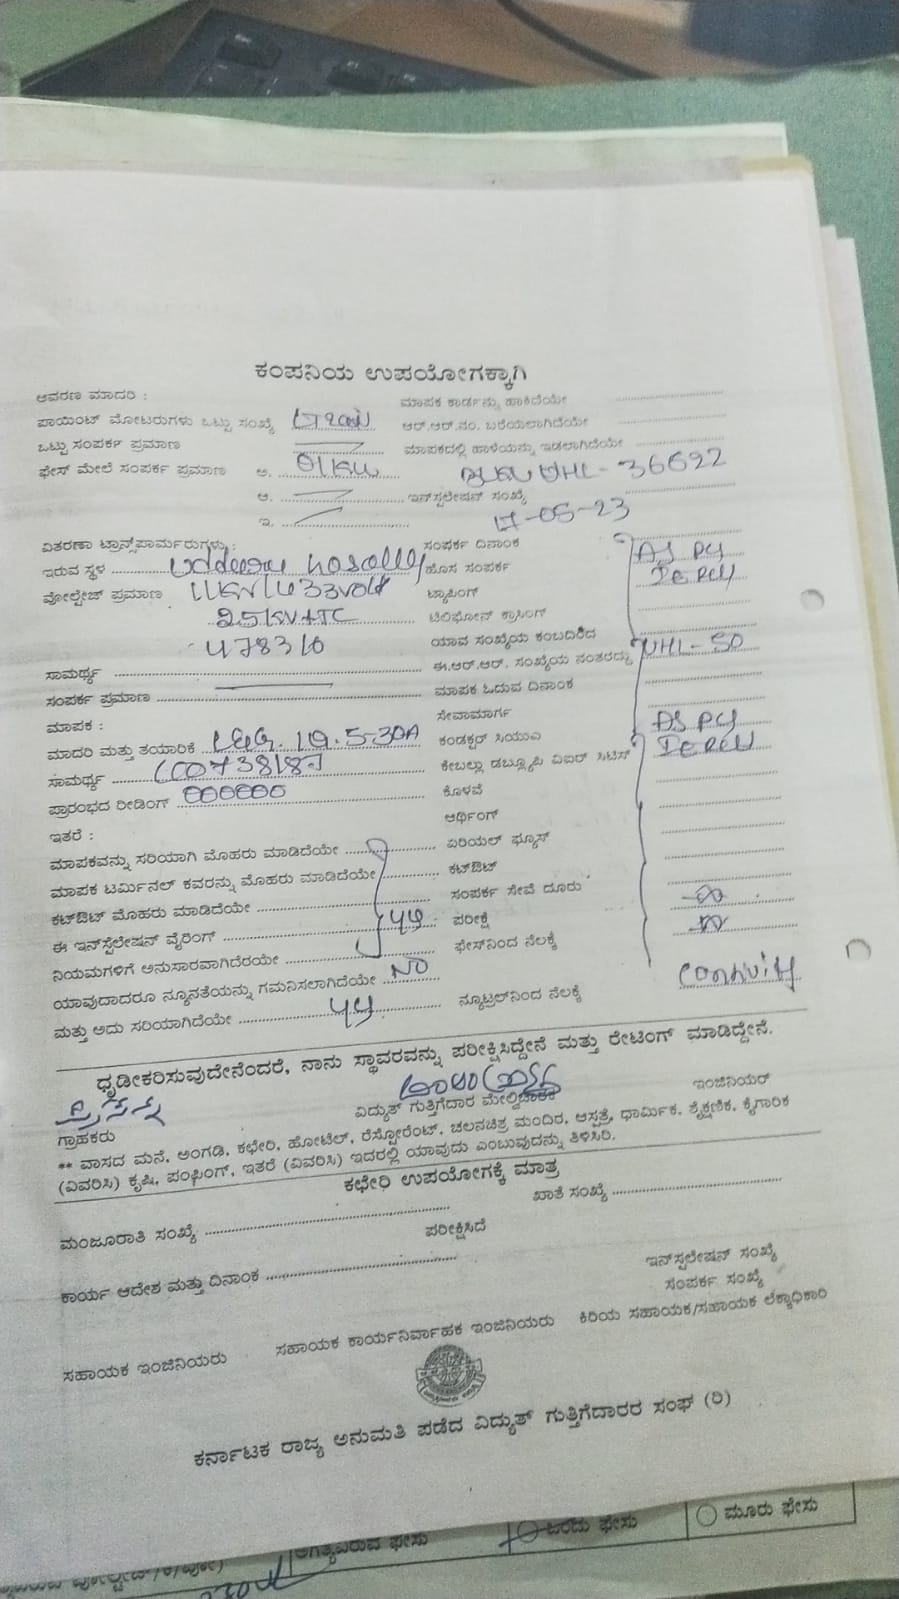 ಕಂಪನಿಯ ಉಪಯೋಗಕ್ಕಾಗಿ
ಆವರಣ ಮಾದರಿ :
ಮಾಪಕ ಕಾರ್ಡನ್ನು ಹಾಕಿದೆಯೇ
ಪಾಯಿಂಟ್ ಮೋಟರುಗಳು ಒಟ್ಟು ಸಂಖ್ಯೆ
ಆರ್.ಆರ್.ನಂ. ಬರೆಯಲಾಗಿದೆಯೇ
ಒಟ್ಟು ಸಂಪರ್ಕ ಪ್ರಮಾಣ
ಮಾಪಕದಲ್ಲಿ ಹಾಳೆಯನ್ನು ಇಡಲಾಗಿದೆಯೇ
ಫೇಸ್ ಮೇಲೆ ಸಂಪರ್ಕ ಪ್ರಮಾಣ ಅ. 01KW
UHL-36622
ಆ.
ಇನ್‌ಸ್ಟಲೇಷನ್ ಸಂಖ್ಯೆ
ಇ.
17-05-23
ವಿತರಣಾ ಟ್ರಾನ್ಸ್‌ಫಾರ್ಮರುಗಳು :
ಸಂಪರ್ಕ ದಿನಾಂಕ
ಇರುವ ಸ್ಥಳ
ಹೊಸ ಸಂಪರ್ಕ
AS PER
ವೋಲ್ಟೇಜ್ ಪ್ರಮಾಣ 11KV/433Volt
ಟ್ಯಾಪಿಂಗ್
25KVA TC
ಟೆಲಿಫೋನ್ ಕ್ರಾಸಿಂಗ್
478310
ಯಾವ ಸಂಖ್ಯೆಯ ಕಂಬದಿಂದ
ಸಾಮರ್ಥ್ಯ
ಈ.ಆರ್.ಆರ್. ಸಂಖ್ಯೆಯ ನಂತರದ್ದು UHL-50
ಸಂಪರ್ಕ ಪ್ರಮಾಣ
ಮಾಪಕ ಓದುವ ದಿನಾಂಕ
ಮಾಪಕ :
ಸೇವಾಮಾರ್ಗ
ಮಾದರಿ ಮತ್ತು ತಯಾರಿಕೆ L&G. 1Φ. 5-30A
ಕಂಡಕ್ಟರ್ ಸಿಯುಎ
ಸಾಮರ್ಥ್ಯ
ಕೇಬಲ್ಲು ಡಬ್ಲ್ಯೂಪಿ ವಿಐಆರ್ ಸಿಟಿಸ್
ಪ್ರಾರಂಭದ ರೀಡಿಂಗ್ 000000
ಕೊಳವೆ
ಇತರೆ :
ಆರ್ಥಿಂಗ್
ಮಾಪಕವನ್ನು ಸರಿಯಾಗಿ ಮೊಹರು ಮಾಡಿದೆಯೇ
ಏರಿಯಲ್ ಫ್ಯೂಸ್
ಮಾಪಕ ಟರ್ಮಿನಲ್ ಕವರನ್ನು ಮೊಹರು ಮಾಡಿದೆಯೇ
ಕಟ್‌ಔಟ್
ಕಟ್‌ಔಟ್ ಮೊಹರು ಮಾಡಿದೆಯೇ
ಸಂಪರ್ಕ ಸೇವೆ ದೂರು
ಈ ಇನ್‌ಸ್ಟಲೇಷನ್ ವೈರಿಂಗ್
ಪರೀಕ್ಷೆ
ನಿಯಮಗಳಿಗೆ ಅನುಸಾರವಾಗಿದೆರಯೇ
ಫೇಸ್‌ನಿಂದ ನೆಲಕ್ಕೆ
ಯಾವುದಾದರೂ ನ್ಯೂನತೆಯನ್ನು ಗಮನಿಸಲಾಗಿದೆಯೇ NO
ಮತ್ತು ಅದು ಸರಿಯಾಗಿದೆಯೇ
ನ್ಯೂಟ್ರಲ್‌ನಿಂದ ನೆಲಕ್ಕೆ
ಧೃಡೀಕರಿಸುವುದೇನೆಂದರೆ, ನಾನು ಸ್ಥಾವರವನ್ನು ಪರೀಕ್ಷಿಸಿದ್ದೇನೆ ಮತ್ತು ರೇಟಿಂಗ್ ಮಾಡಿದ್ದೇನೆ.
ಗ್ರಾಹಕರು
ವಿದ್ಯುತ್ ಗುತ್ತಿಗೆದಾರ ಮೇಲ್ವಿಚಾರಕ
ಇಂಜಿನಿಯರ್
** ವಾಸದ ಮನೆ, ಅಂಗಡಿ, ಕಛೇರಿ, ಹೋಟೆಲ್, ರೆಸ್ಟೋರೆಂಟ್, ಚಲನಚಿತ್ರ ಮಂದಿರ, ಆಸ್ಪತ್ರೆ, ಧಾರ್ಮಿಕ, ಶೈಕ್ಷಣಿಕ, ಕೈಗಾರಿಕ
(ವಿವರಿಸಿ) ಕೃಷಿ, ಪಂಪಿಂಗ್, ಇತರೆ (ವಿವರಿಸಿ) ಇದರಲ್ಲಿ ಯಾವುದು ಎಂಬುವುದನ್ನು ತಿಳಿಸಿರಿ.
ಕಛೇರಿ ಉಪಯೋಗಕ್ಕೆ ಮಾತ್ರ
ಮಂಜೂರಾತಿ ಸಂಖ್ಯೆ
ಖಾತೆ ಸಂಖ್ಯೆ
ಪರೀಕ್ಷಿಸಿದೆ
ಕಾರ್ಯ ಆದೇಶ ಮತ್ತು ದಿನಾಂಕ
ಇನ್‌ಸ್ಟಲೇಷನ್ ಸಂಖ್ಯೆ
ಸಂಪರ್ಕ ಸಂಖ್ಯೆ
ಸಹಾಯಕ ಇಂಜಿನಿಯರು
ಸಹಾಯಕ ಕಾರ್ಯನಿರ್ವಾಹಕ ಇಂಜಿನಿಯರು
ಕಿರಿಯ ಸಹಾಯಕ/ಸಹಾಯಕ ಲೆಕ್ಕಾಧಿಕಾರಿ
ಕರ್ನಾಟಕ ರಾಜ್ಯ ಅನುಮತಿ ಪಡೆದ ವಿದ್ಯುತ್ ಗುತ್ತಿಗೆದಾರರ ಸಂಘ (ರಿ)
ಅಗತ್ಯವಿರುವ ಫೇಸು
ಒಂದು ಫೇಸು
ಮೂರು ಫೇಸು